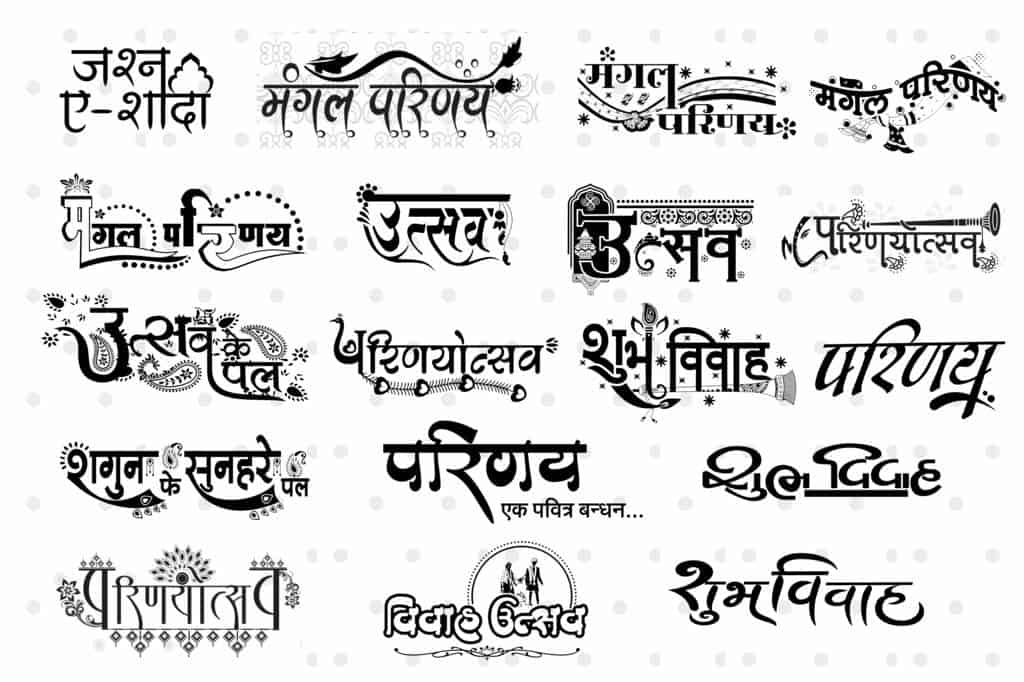 जश्न
ए-शादी
मंगल परिणय
मंगल
परिणय
मंगल परिणय
मंगल परिणय
उत्सव
उत्सव
परिणयोत्सव
उत्सव के
पल
परिणयोत्सव
शुभ विवाह
परिणय
शगुन के सुनहरे पल
परिणय
एक पवित्र बन्धन...
शुभ विवाह
परिणयोत्सव
विवाह उत्सव
शुभविवाह